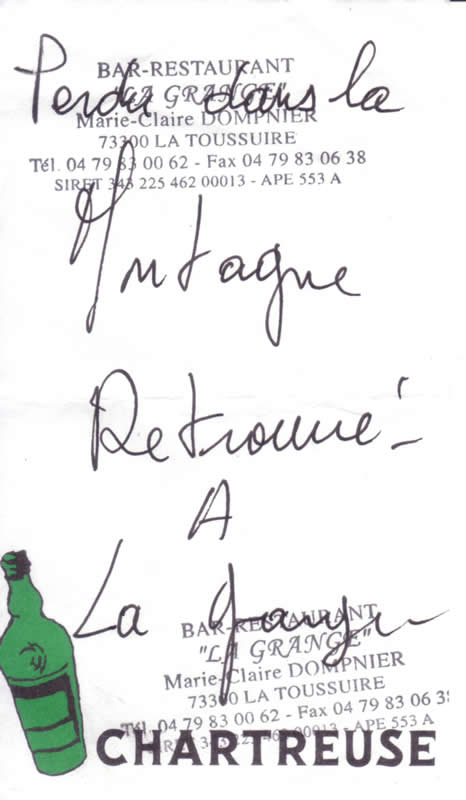 BAR-RESTAURANT
Perdu dans la
"LA GRANGE"
Marie-Claire DOMPNIER
73300 LA TOUSSUIRE
Tél. 04 79 83 00 62 - Fax 04 79 83 06 38
SIRET 343 225 462 00013 - APE 553 A
Montagne
Retrouvé
A
La Grange
BAR-RESTAURANT
"LA GRANGE"
Marie-Claire DOMPNIER
73300 LA TOUSSUIRE
Tél. 04 79 83 00 62 - Fax 04 79 83 06 3
SIRET 343 225 462 00013 - APE 553 A
CHARTREUSE